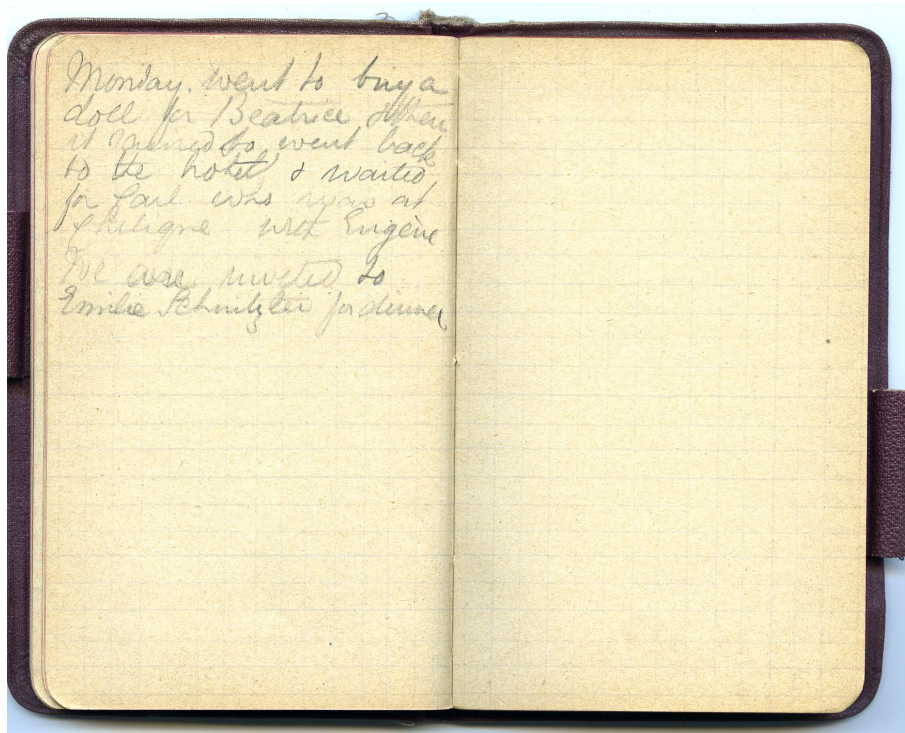 Monday. went to buy a
doll for Beatrice & then
it rained so went back
to the hotel, & waited
for Carl who was at
with Eugène
We are invited to
Emilie Schnitzler for dinner